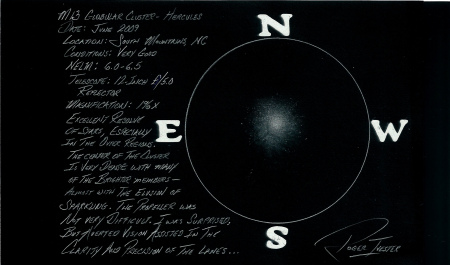 M13 Globular Cluster - Hercules
Date: June 2009
Location: South Mountains, NC
Conditions: Very Good
NELM: 6.0-6.5
Telescope: 12-Inch f/5.0
Reflector
Magnification: 196x
Excellent Resolve
Of Stars, Especially
In The Outer Regions.
The Center of The Cluster
Is Very Dense with many
of The Brighter members -
Almost with The Elusion of
Sparkling. The Propeller was
Not very Difficult. I was Surprised,
But Averted Vision Assisted In The
Clarity And Precision of The Lanes...
N
E
W
S
Roger